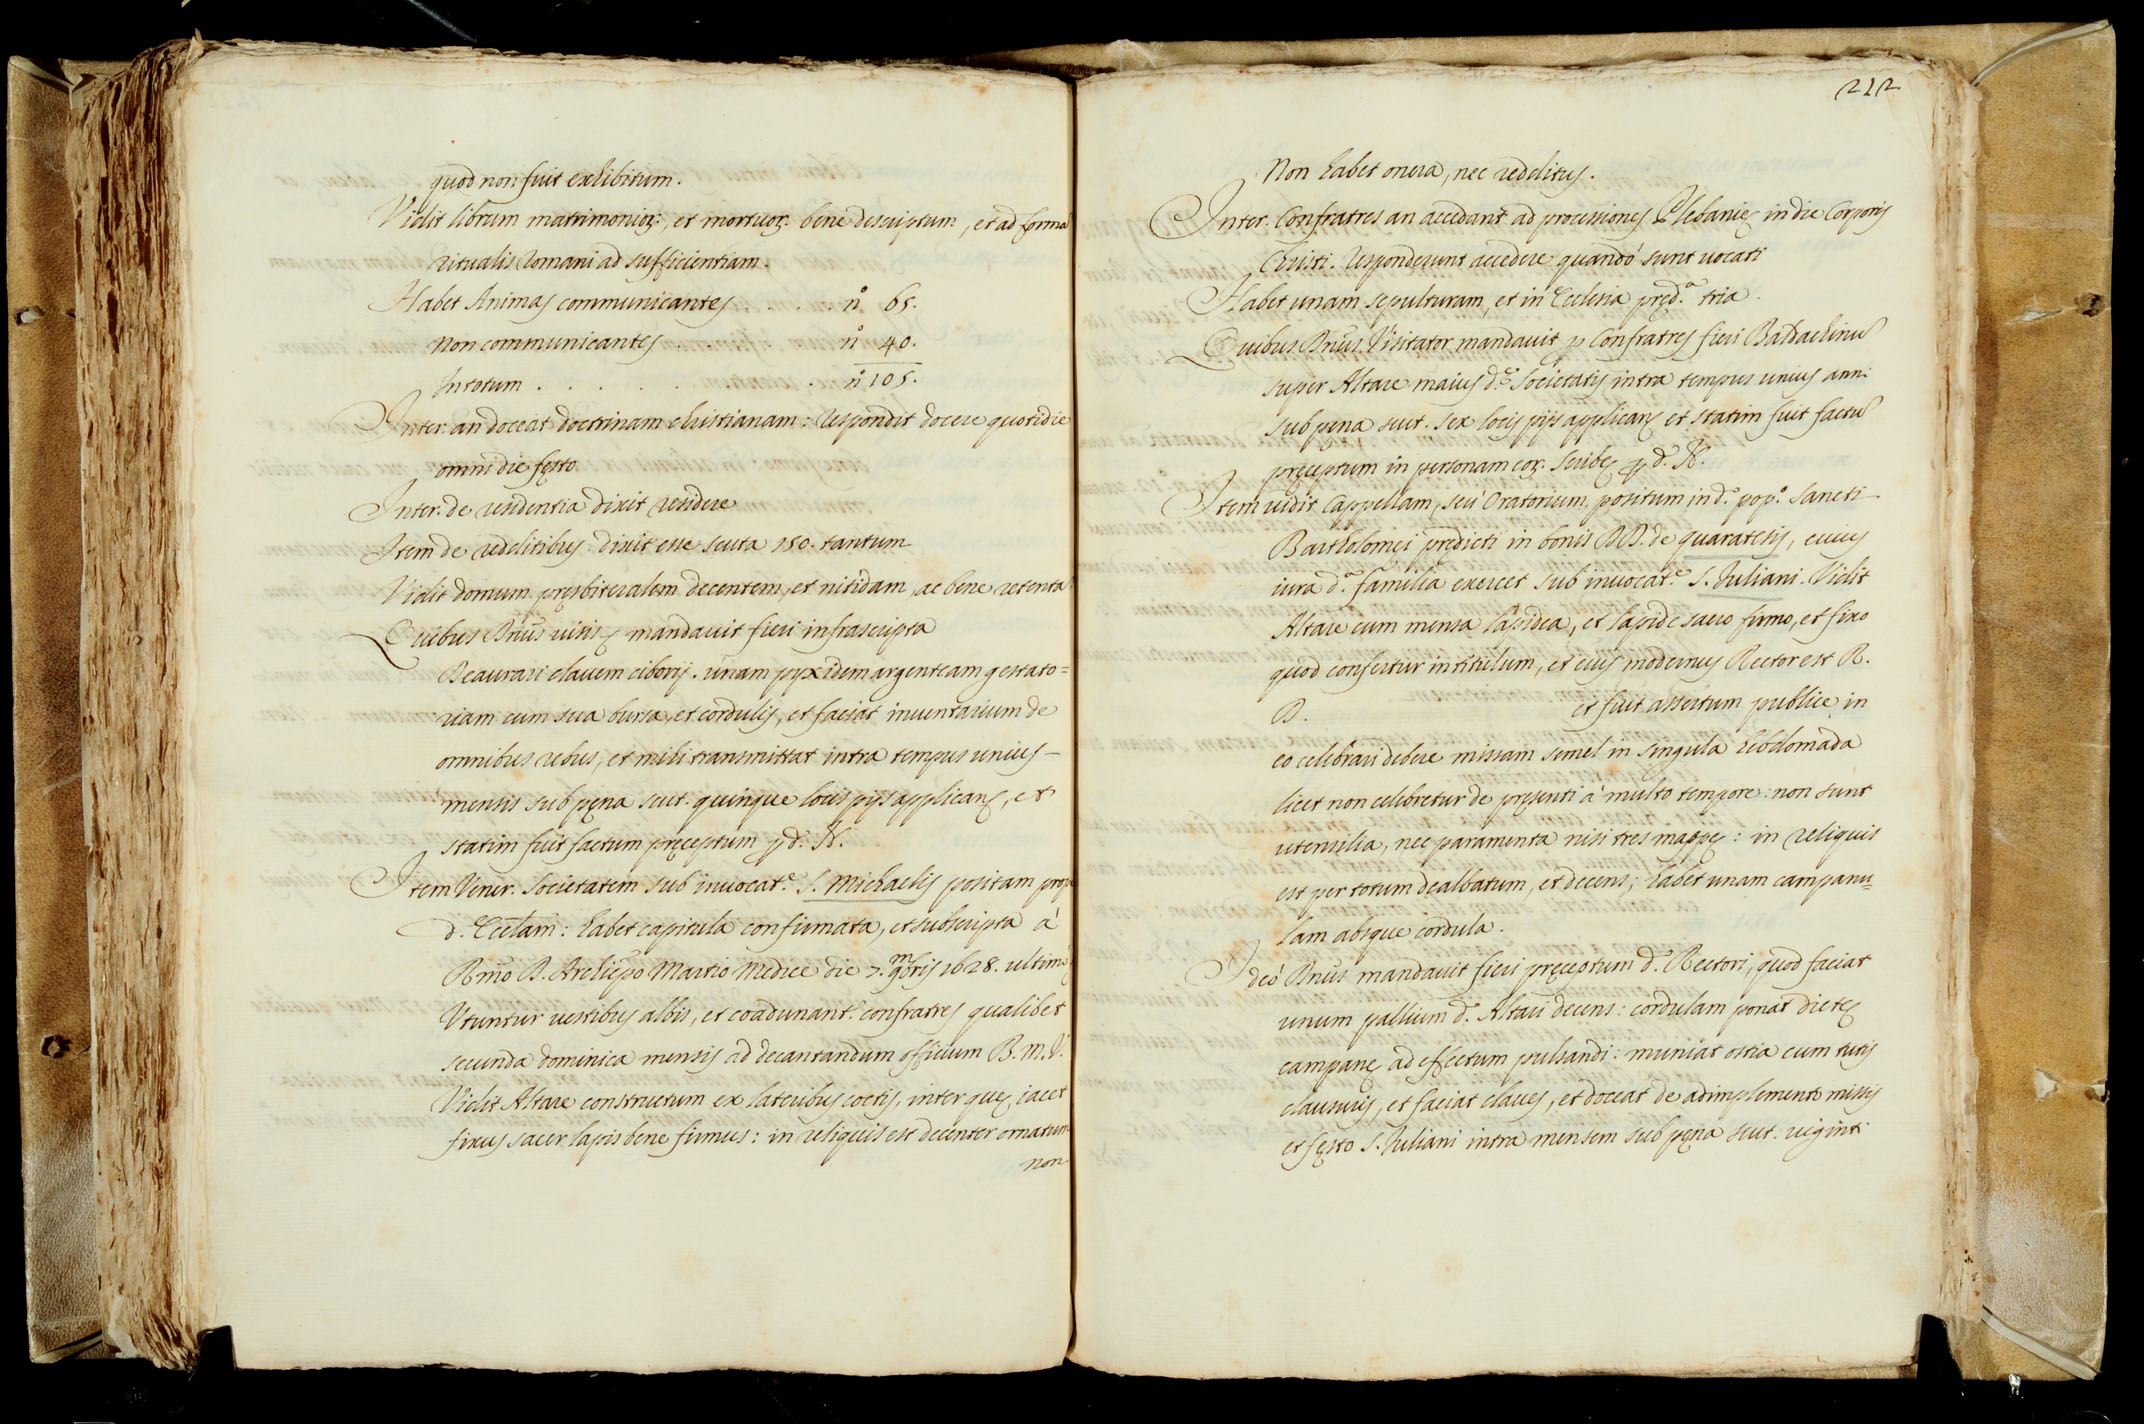 quod non fuit exhibitum.
Vidit librum matrimonior:, et mortuor: bene descriptum, et ad forma
ritualis Romani ad sufficientiam.
Habet Animas communicantes . . . . n.º 65.
Non communicantes . . . . n.º 40.
In totum . . . . . . . n.º 105.
Inter. an doceat doctrinam christianam: Respondit docere quotidie
omni die festo
Inter. de residentia dixit residere
Item de redditibus dixit esse scuta 150. tantum
Vidit domum pręsbiteralem decentem, et nitidam, ac bene retenta
Quibus Dnūs visis mandavit fieri infrascripta
Deaurari clavem ciborij. unam pyxidem argenteam gestato=
riam cum sua bursa, et cordulis, et faciat inventarium de
omnibus rebus, et mihi transmittat intra tempus unius –
mensis sub pęna scut. quinque locis pijs applican, et
statim fuit factum pręceptum p d. N.
Item Vener. Societatem sub invocat.e S. Michaelis positam prope
d. Ecclam: habet capitula confirmata, et subscripta à
Rmo D. Archiepo Martio Medice die 7. 9mbris 1628. ultimo
Utuntur vestibus albis, et coadunant. confratres qualibet
secunda dominica mensis ad decantandum officium B. M. V.
Vidit Altare constructum ex lateribus coctis, inter quę iacet
fixus sacer lapis bene firmus: in reliquis est decenter ornatum
non
212
Non habet onera, nec redditus.
Inter. Confratres an accedant ad processiones Plebanię in die Corporis
Christi. Responderunt accedere quandò sunt vocati
Habet unam sepulturam, et in Ecclesia pręd.a tria.
Quibus Dnūs Visitator mandavit p Confratres fieri Baldachinu
super Altare maius d.ę Societatis intra tempus unius anni
sub pęna scut. sex locis pijs applican et statim fuit factu
pręceptum in personam eor. Scribę p d. N.
Item vidit Cappellam, seù Oratorium, positum in d.o pop.o Sancti
Bartholomęi prędicti in bonis DD. de Quaratesijs, cuius
iura d.a familia exercet sub invocat.e S. Iuliani. Vidit
Altare cum mensa lapidea, et lapide sacro firmo, et fixo
quod confertur in titulum, et eius modernus Rector est R.
D. et fuit assertum publice in
eo celebrari debere missam semel in singula hebdomada
licet non celebretur de pręsenti à multo tempore: non sunt
utensilia, nec paramenta nisi tres mappę: in reliquis
est per totum dealbatum, et decens; habet unam campanu=
lam absque cordula.
Ideò Dnūs mandavit fieri pręceptum d.o Rectori, quod faciat
unum pallium d.o Altari decens: cordulam ponat dictę
campanę ad effectum pulsandi: muniat ostia cum tutis
clausuris, et faciat claves, et doceat de adimplemento missis
et festo S. Iuliani intra mensem sub pęna scut. viginti